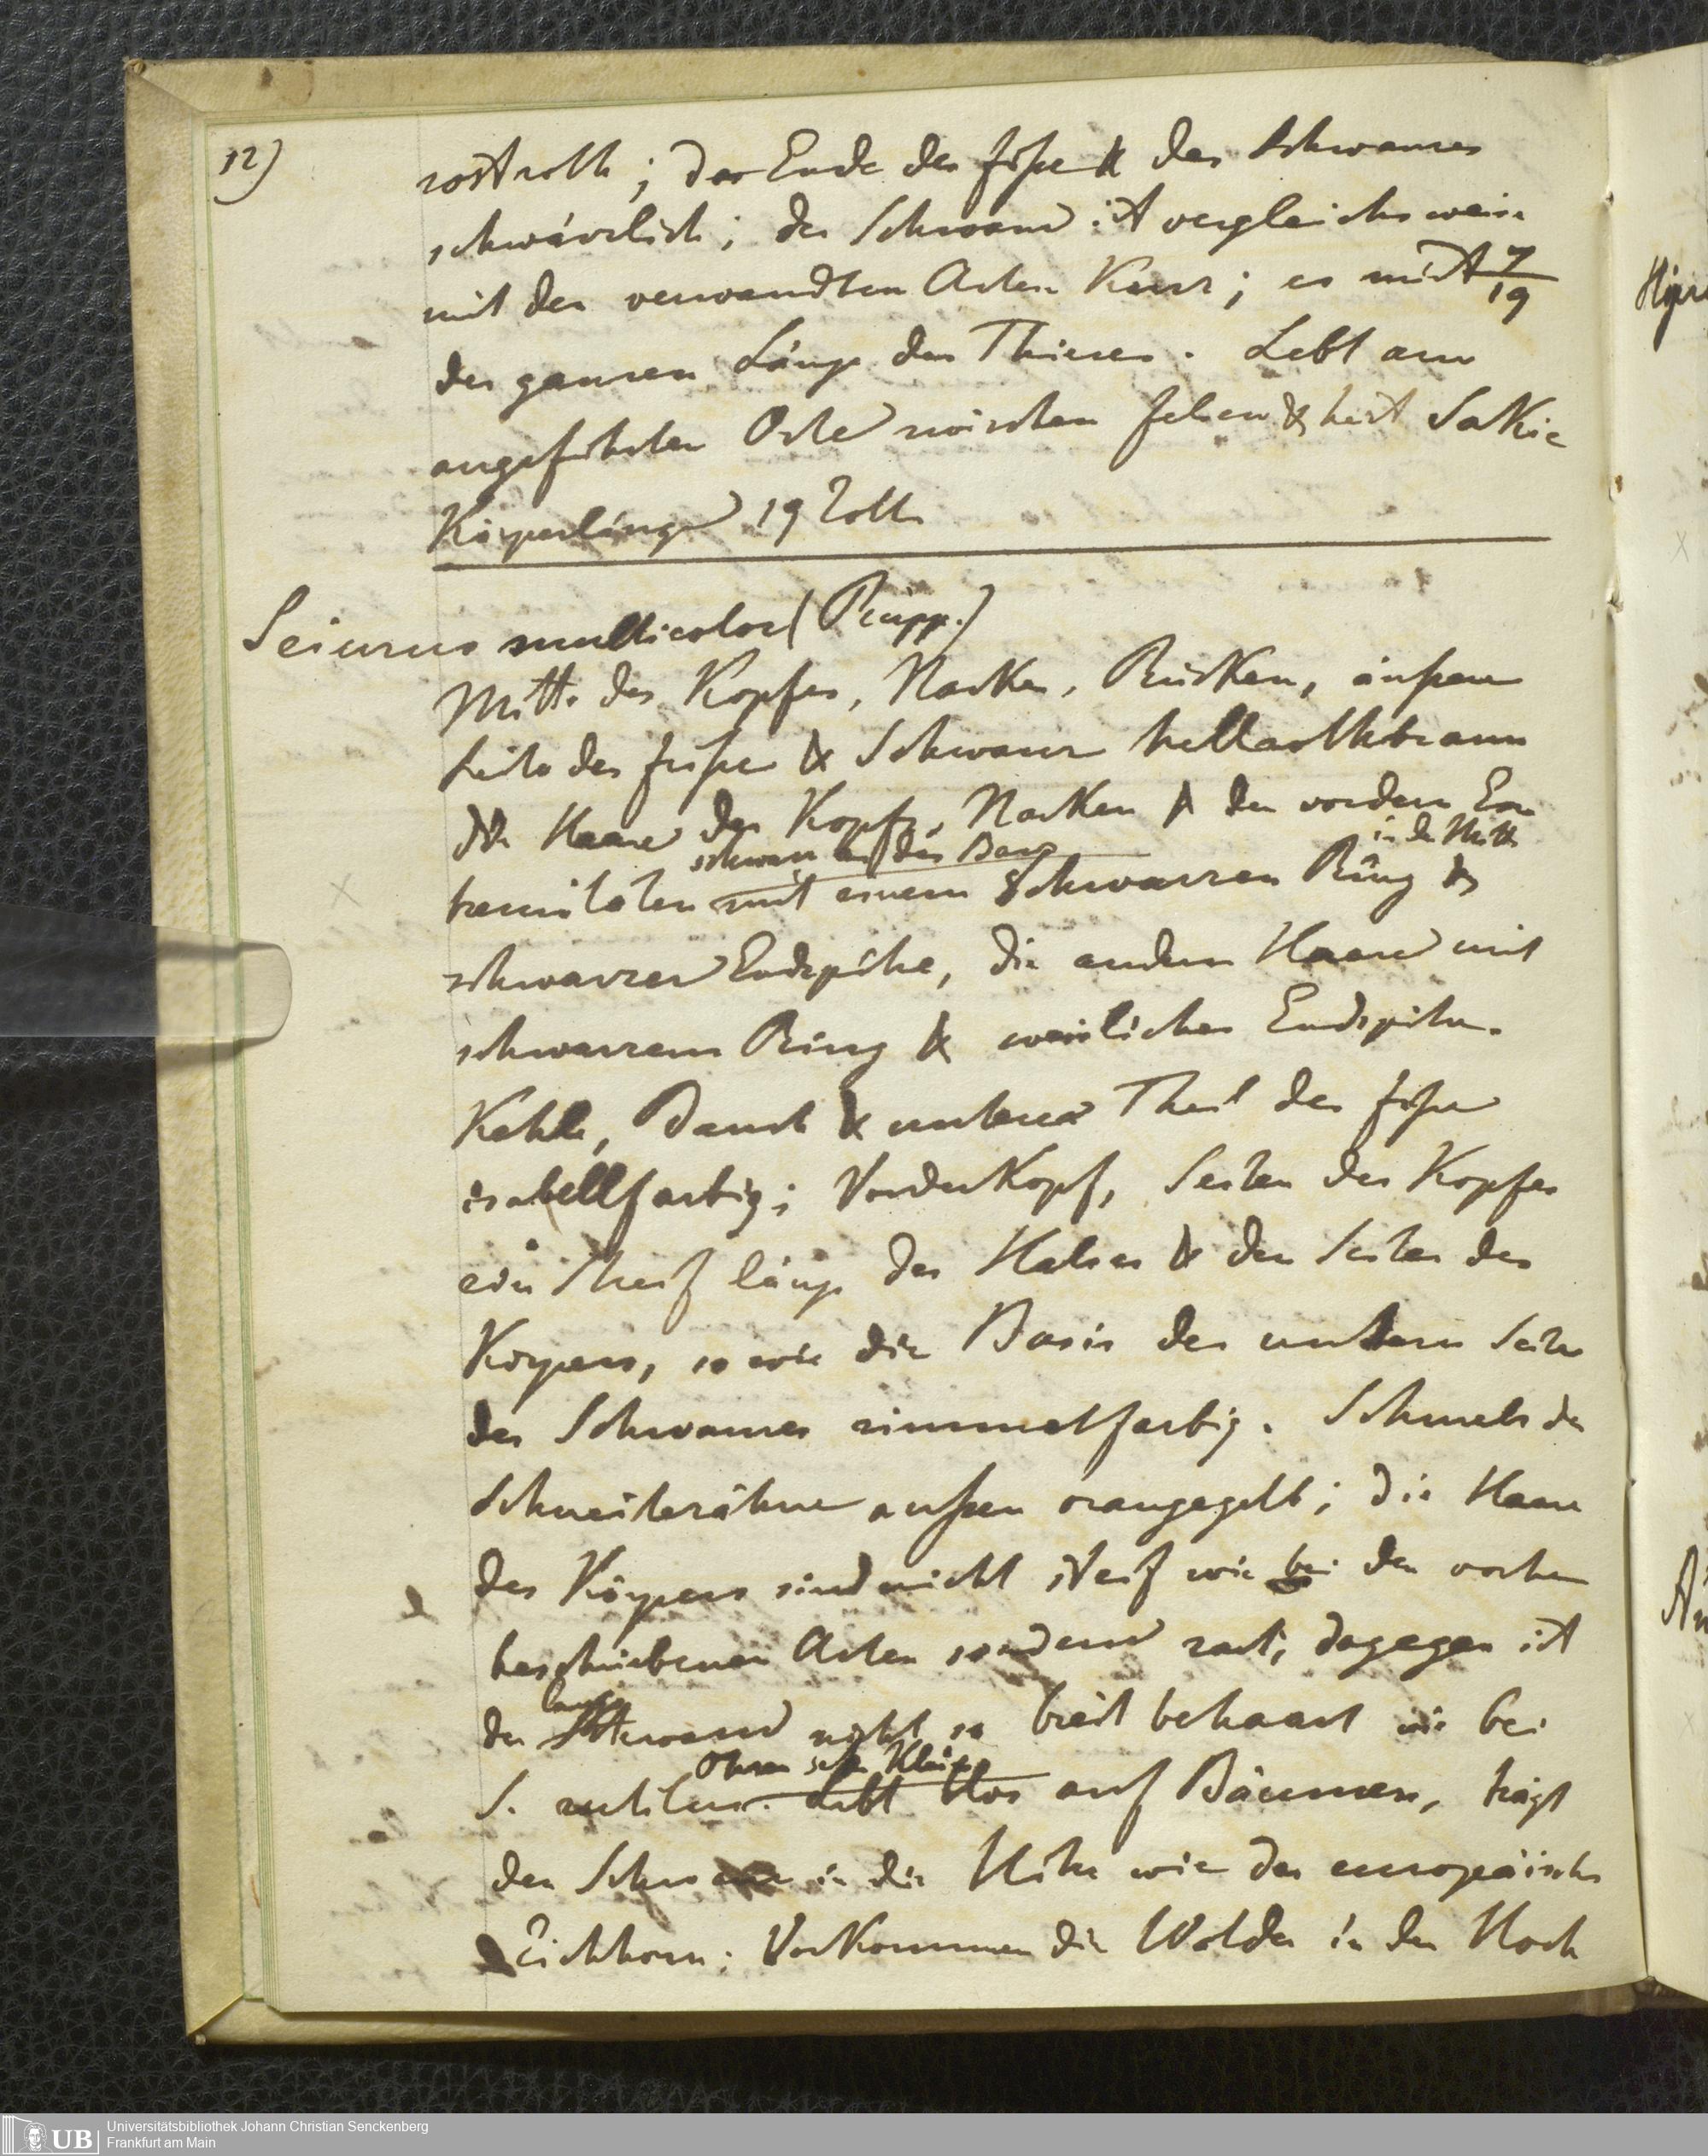 12)
rostroth; das Ende der Füße & des Schwanzes
schwärzlich; der Schwanz ist vergleichsweise
mit den verwandten Arten kurz; er mißt 7/19
der ganzen Länge des Thieres. Lebt am
angeführten Orte zwischen Felsen & heist Sakie
Körperlänge 19 Zolle
Sciurus multicolor (Rüpp.)
Mitte des Kopfes, Nacken, Rücken, äußere
Seite der Füße & Schwanz hellrothbraun
Die Haare des Kopfs, Nacken & der vordern Ex
schwarz an der Basis
in der Mitte
tremitäten mit einem schwarzen Ring &
schwarzer Endspitze, die andern Haare mit
schwarzem Ring & weislicher Endspitze.
Kehle, Bauch & unterer Theil der Füße
isabellfarbig; Vorderkopf, Seiten des Kopfes
ein Streif längs des Halses & der Seiten des
Körpers, so wie die Basis der untern Seite
des Schwanzes zimmetfarbig. Schmelz der
Schneidezähne außen orangegelb; die Haare
des Körpers sind nicht steif wie bei den vorher
beschriebenen Arten sondern zart, dagegen ist
lange
der Schwanz nicht so breit behaart wie bei
Ohren sehr klein
S. rutilus. Lebt blos auf Bäumen, trägt
den Schwanz in die Höhe wie das europäische
Eichhorn; Vorkommen die Wälder in der Hoch
Universitätsbibliothek Johann Christian Senckenberg
Frankfurt am Main
UB